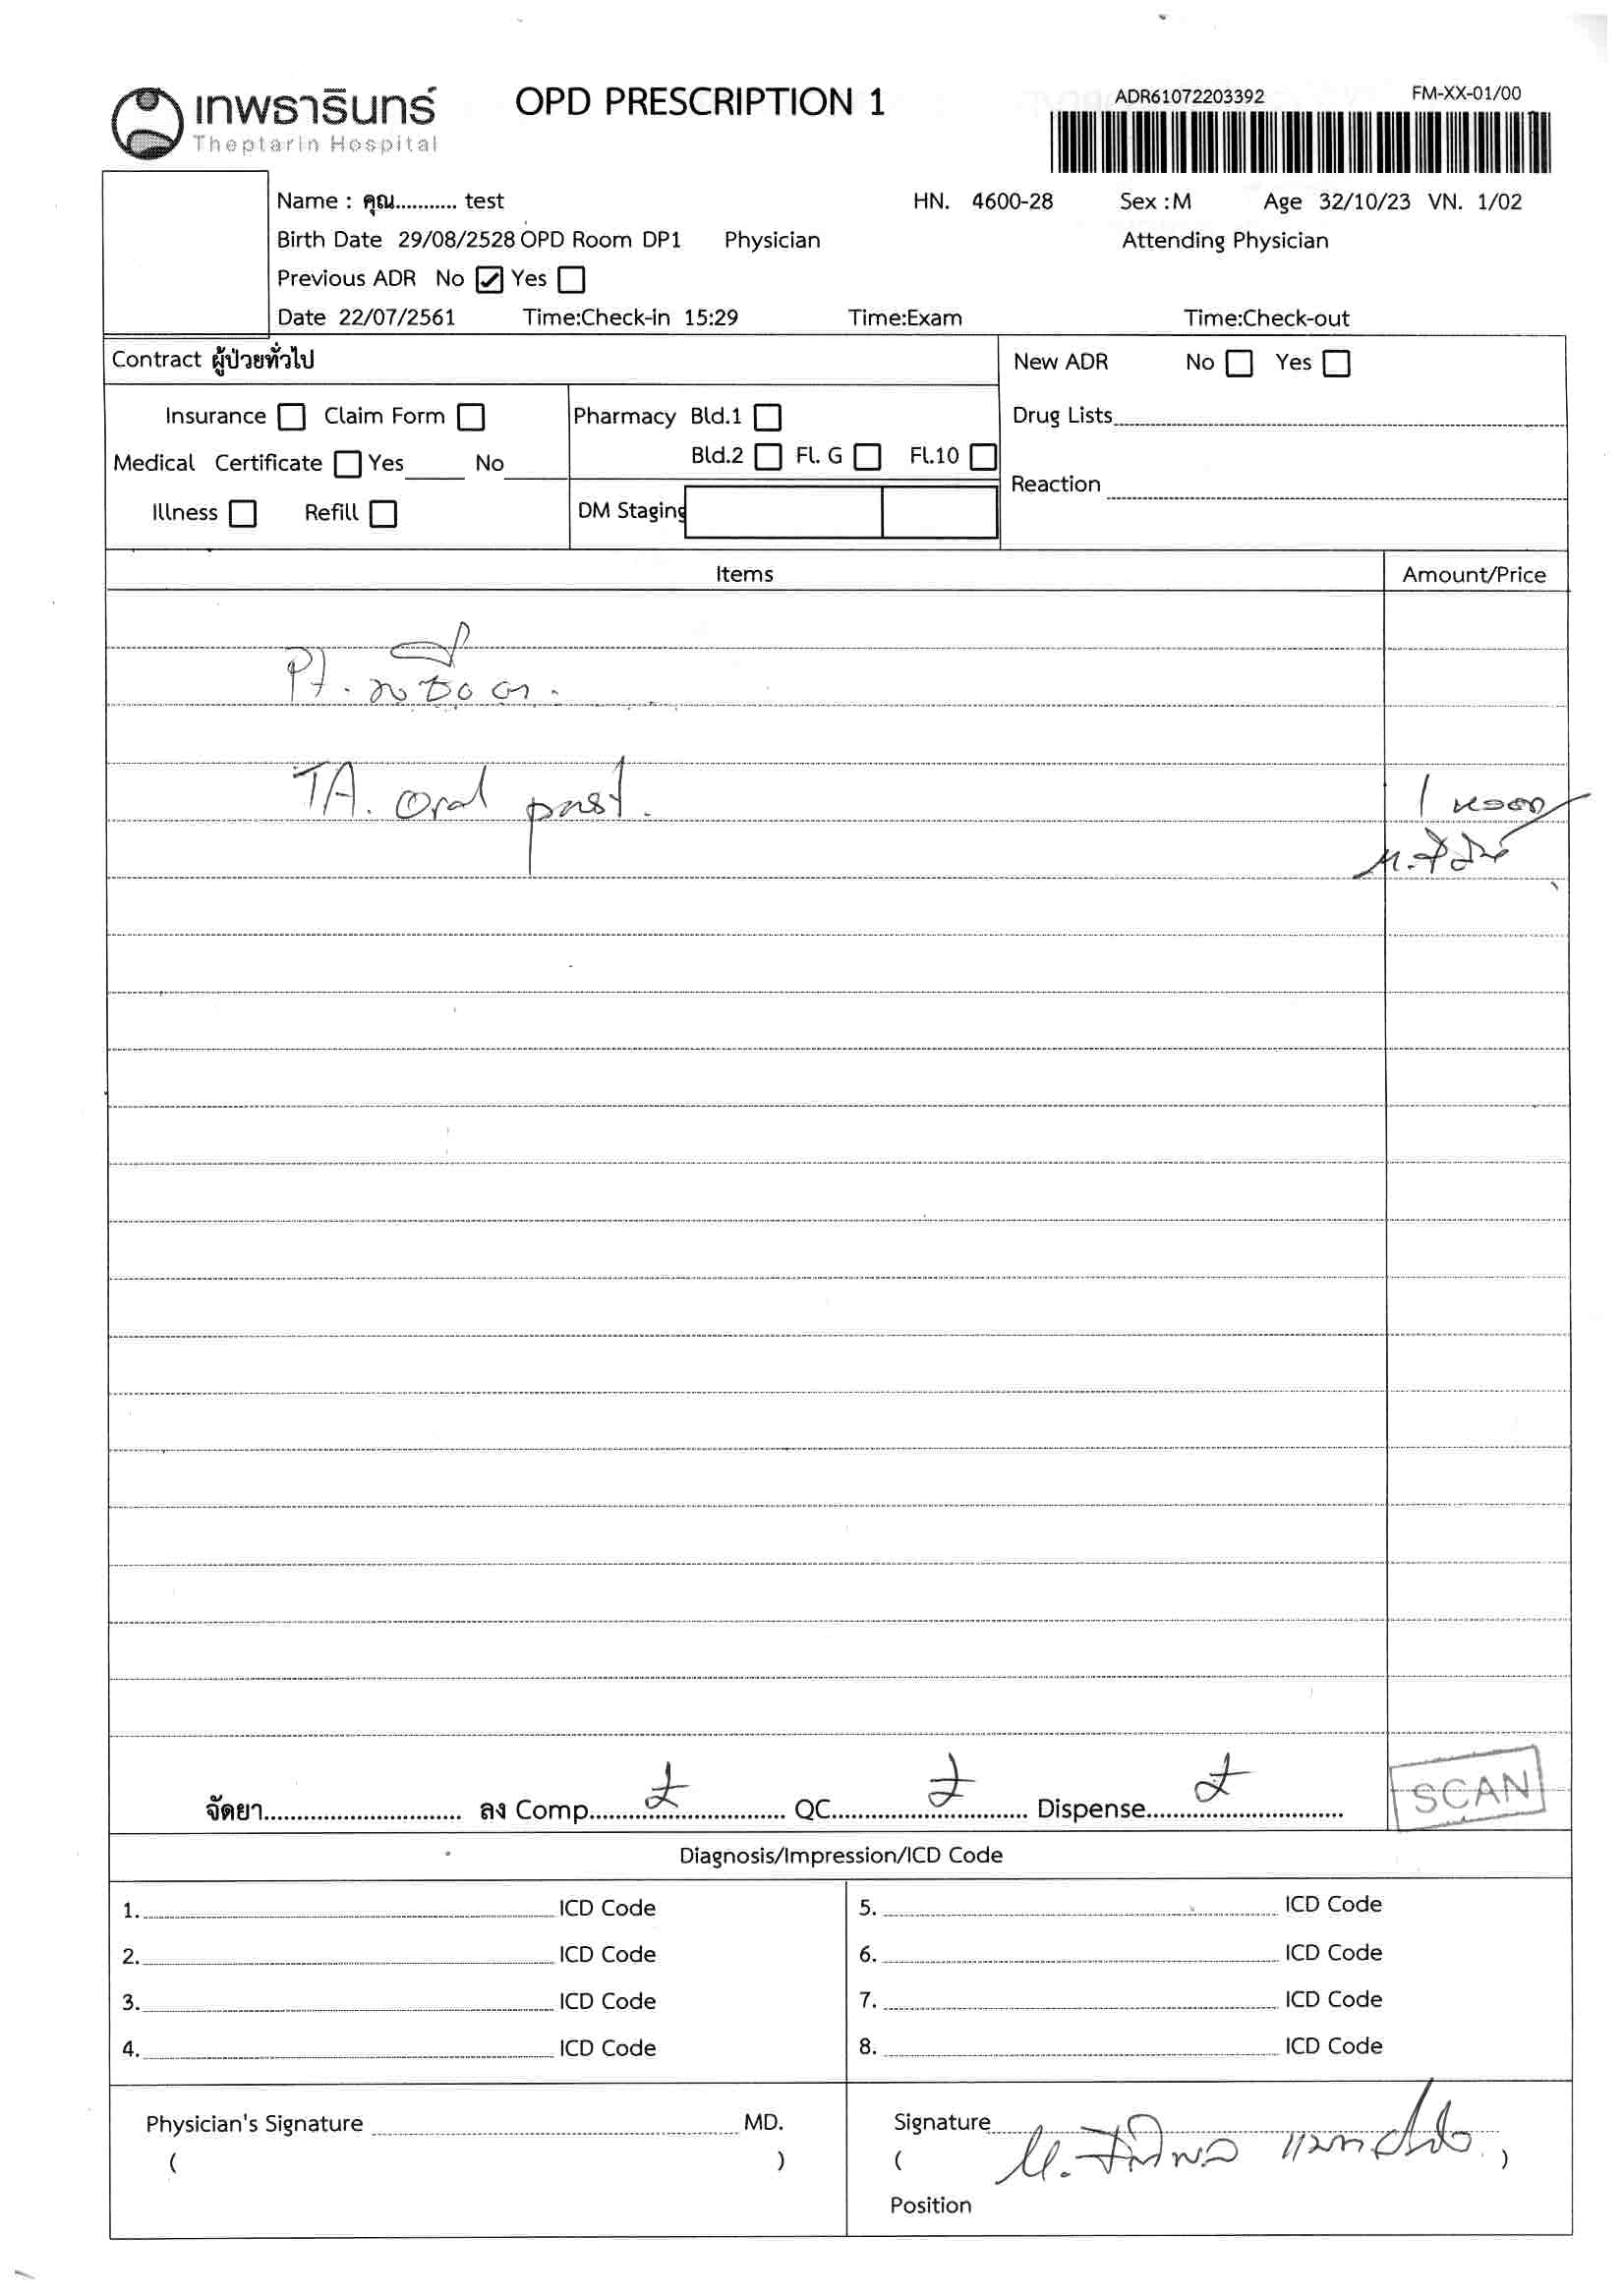 เทพธารินทร์
Theptarin Hospital
OPD PRESCRIPTION 1
ADR61072203392
FM-XX-01/00
Name : คุณ........... test HN. 4600-28 Sex :M Age 32/10/23 VN. 1/02
Birth Date 29/08/2528 OPD Room DP1 Physician Attending Physician
Previous ADR No Yes
Date 22/07/2561 Time:Check-in 15:29 Time:Exam Time:Check-out
Contract ผู้ป่วยทั่วไป
New ADR No Yes
Insurance Claim Form
Pharmacy Bld.1
Drug Lists
Medical Certificate Yes No
Bld.2 Fl. G Fl.10
Reaction
Illness Refill
DM Staging
Items Amount/Price
Pt. ขอซื้อยา
TA. oral past. 1 หลอด
จัดยา............................ ลง Comp............................ QC............................ Dispense............................
SCAN
Diagnosis/Impression/ICD Code
1. ICD Code 5. ICD Code
2. ICD Code 6. ICD Code
3. ICD Code 7. ICD Code
4. ICD Code 8. ICD Code
Physician's Signature MD. Signature
( ) ( )
Position